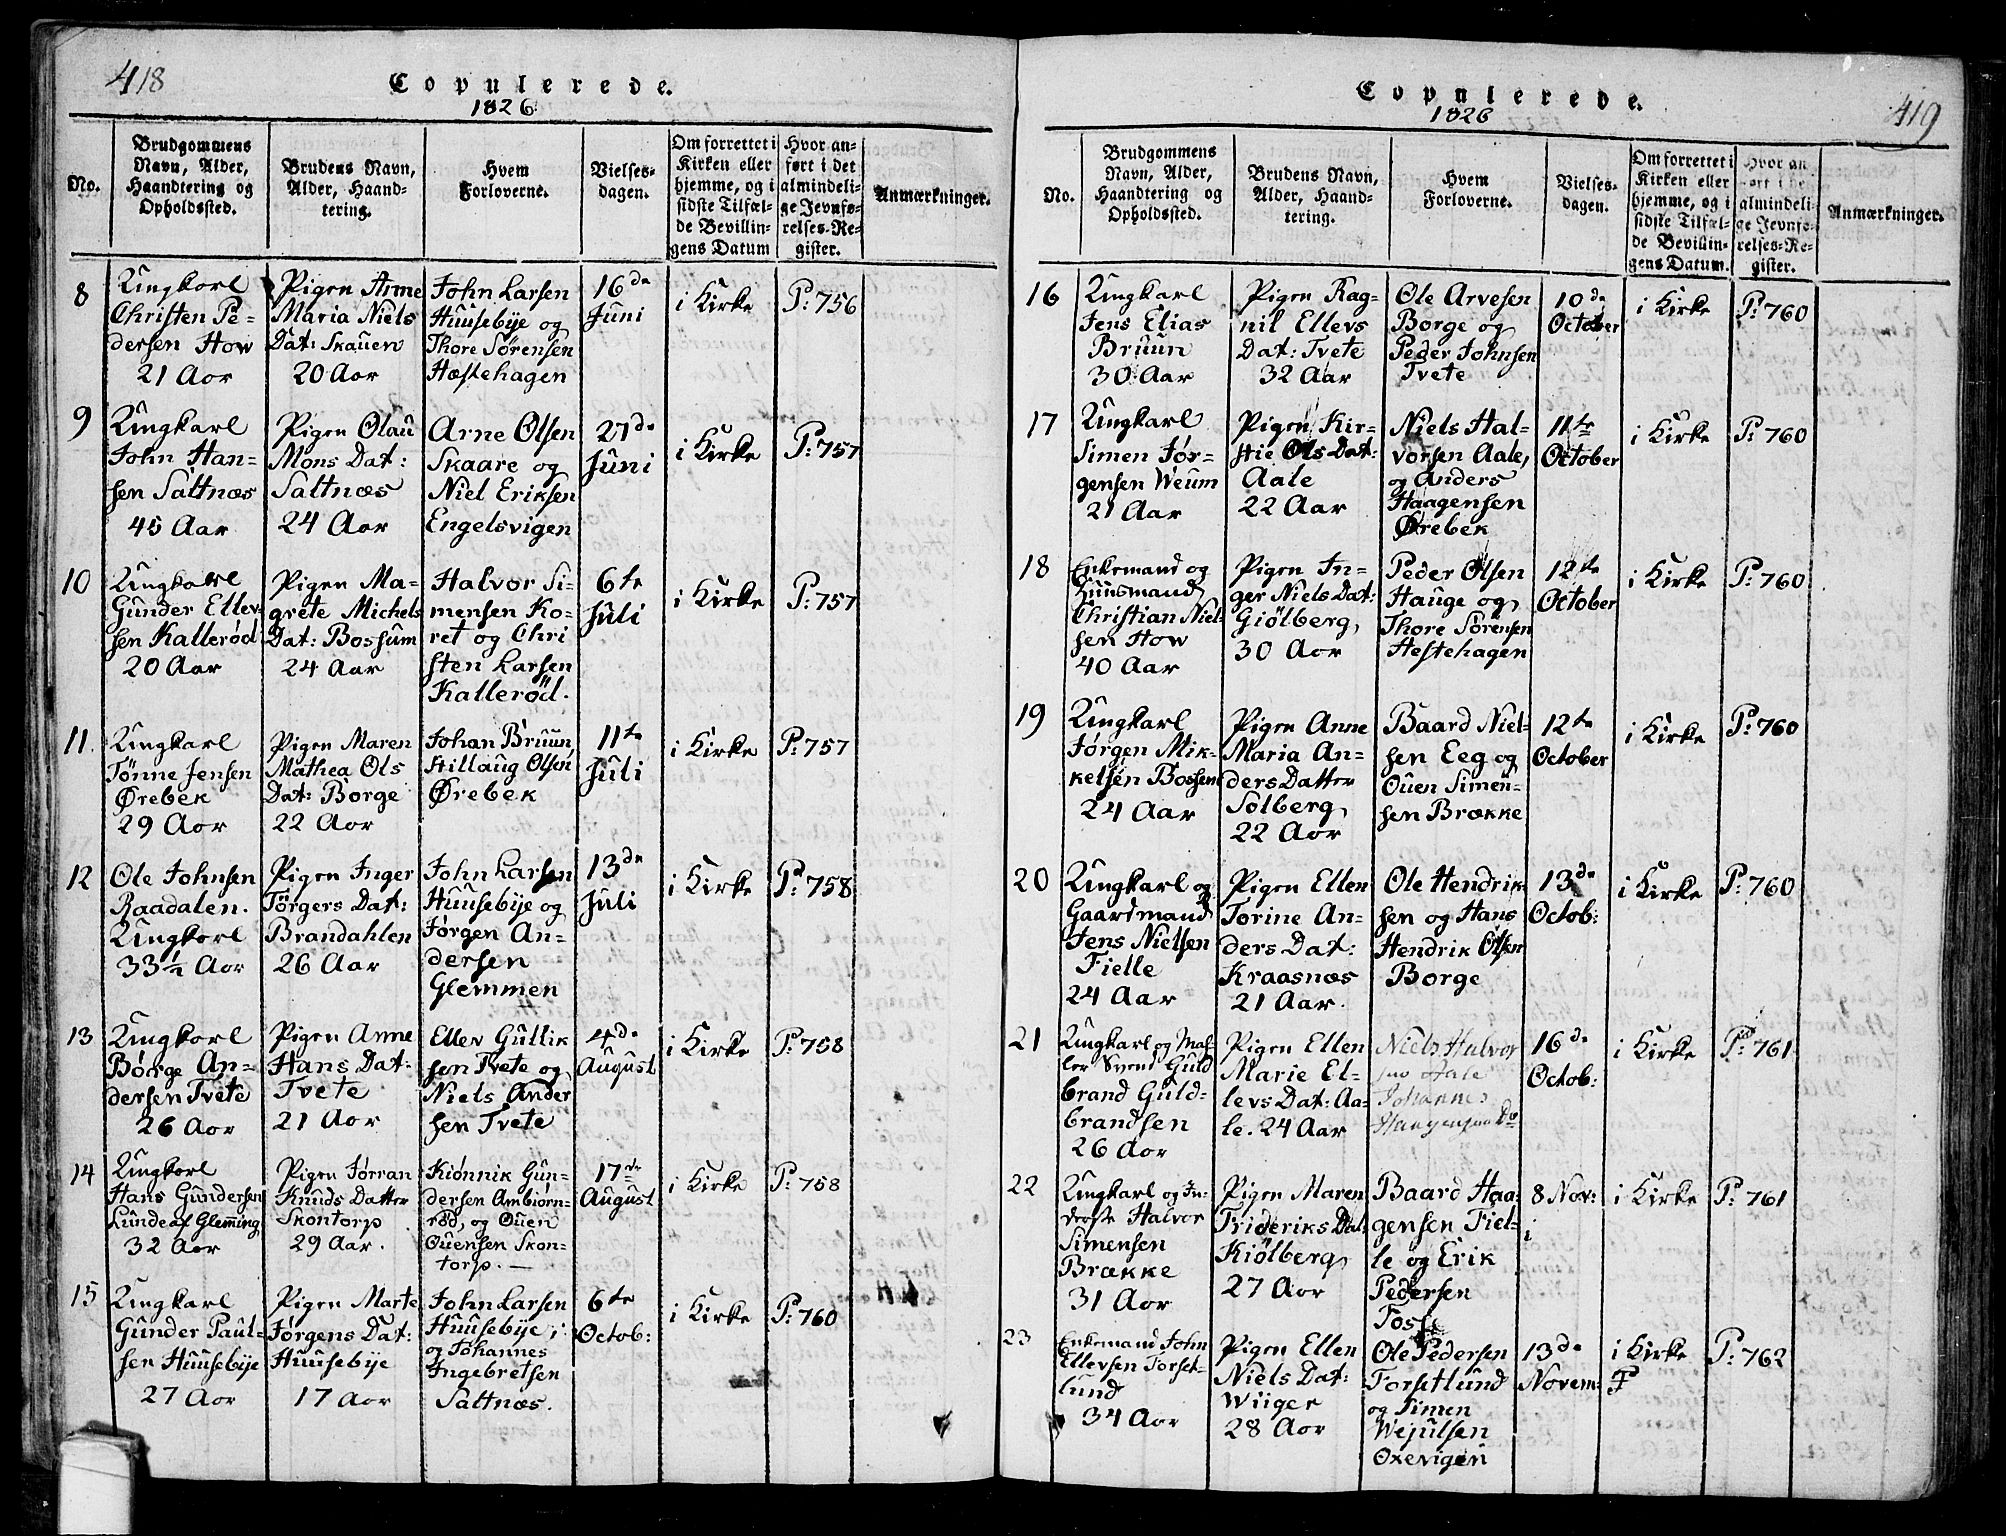 418
Copulerede.
1826.
No.
Brudgommens
Navn, Alder,
Haandtering og
Opholdssted.
Brudens Navn,
Alder, Haand-
tering.
Hvem
Forloverne.
Vielses-
dagen.
Om forrettet i
Kirken eller
hjemme, og i
sidste Tilfæl-
de Bevillin-
gens Datum
Hvor an-
ført i det
almindeli-
ge Jevnfø-
relses-Re-
gister.
Anmærkninger.
8
Ungkarl
Christen Pe-
dersen How
21 Aar
Pigen Anne
Maria Niels
Dat: Skauen
20 Aar
John Larsen
Huusebÿe og
Thore Sørensen
Hæstehagen
16de
Juni
i Kirke
P: 756
9
Ungkarl
John Han-
sen Saltnæs
45 Aar
Pigen Olau
Mons Dat:
Saltnæs
24 Aar
Arne Olsen
Skaare og
Niel Eriksen
Engelsvigen
27de
Juni
i Kirke
P: 757
10
Ungkarl
Gunder Ellev-
sen Kallerød
20 Aar
Pigen Ma-
grete Michels
Dat: Bossum
24 Aar
Halvor Si-
mensen Ko-
ret og Chri
sten Larsen
Kallerød.
6te
Juli
i Kirke
P: 757
11.
Ungkarl
Tønne Jensen
Ørebek
29 Aar
Pigen Maren
Mathea Ols
Dat: Borge
22 Aar
Johan Bruun,
Stillaug Olsen
Ørebek
11te
Juli
i Kirke
P: 757
12
Ole Johnsen
Raadalen.
Ungkarl
33½ Aar
Pigen Inger
Jörgers Dat:
Brandahlen
26 Aar
John Larsen
Huusebÿe og
Jørgen An-
dersen
Glemmen
13de
Juli
i Kirke
P: 758
13
Ungkarl
Børge An-
dersen Tvete
26 Aar
Pigen Anne
Hans Dat:
Tvete
21 Aar
Ellev Gullik
sen Tvete og
Niels Ander
sen Tvete
4de
August
i Kirke
P: 758
14
Ungkarl
Hans Gundersen
Lunde af Glemming
32 Aar
Pigen Jørran
Knuds Datter
Skontorp
29 Aar.
Kiönnik Gun-
dersen Ambiørn-
rød, og Ouen
Ouensen Skon-
torp. —
17de
August
i Kirke
P: 758
15
Ungkarl
Gunder Paul-
sen Huusebÿe
27 Aar
Pigen Marte
Jørgens Dat:
Huusebÿe
17 Aar
John Larsen
Huusebÿe;
og Johannes
Ingebretsen
Saltnæs.
6te
Octob:
i Kirke
P: 760
419
Copulerede.
1826
No.
Brudgommens
Navn, Alder,
Haandtering og
Opholdssted.
Brudens Navn,
Alder, Haand-
tering.
Hvem
Forloverne.
Vielses-
dagen.
Om forrettet i
Kirken eller
hjemme, og i
sidste Tilfæl-
de Bevillin-
gens Datum.
Hvor an-
ført i de
almindeli-
ge Jevnfø-
relses-Re-
gister.
Anmærkninger.
16
Ungkarl
Jens Elias
Bruun
30 Aar
Pigen Rag-
nil Ellevs
Dat: Tvete
32 Aar
Ole Arvesen
Borge og
Peder Johnsen
Tvete
10de
October
i Kirke
P: 760
17
Ungkarl
Simen Jør-
gensen Weum
21 Aar
Pigen Kir-
stie Ols Dat:
Aale
22 Aar
Niels Hal-
vorsen Aale,
og Anders
Haagensen
Ørebek
11te
October
i Kirke
P: 760
18
Enkemand og
Huusmand
Christian Niel-
sen How
40 Aar
Pigen In-
ger Niels Dat:
Giölberg,
30 Aar
Peder Olsen
Hauge og
Thore Sørensen
Hestehagen
12te
October
i Kirke
P: 760
19
Ungkarl
Jørgen Mik-
kelsen Bossem
24 Aar
Pigen Anne
Maria An-
ders Datter
Solberg,
22 Aar
Baard Niel-
sen Eeg og
Ouen Simen-
sen Brække
12te
October
i Kirke
P: 760
20
Ungkarl og
Gaardmand
Jens Nielsen
Fielle
24 Aar
Pigen Ellen
Torine An-
ders Dat:
Kraasnæs
21 Aar.
Ole Hendrik
sen og Hans
Hendrik Olsen
Borge
13de
Octob:
i Kirke
P: 760
21
Ungkarl og Mal-
ler Svend Guld
brand Guld-
brandsen
26 Aar
Pigen Ellen
Marie El-
levs Dat: Aa-
le. 24 Aar
Niels Halvor
sen Aale
Johannes
Haagensen Do
16de
Octob:
i Kirke
P: 761
22
Ungkarl og In-
derste Halvor
Simensen
Brække
31 Aar
Pigen Maren
Frideriks Dat:
Kiölberg,
27 Aar
Baard Haa-
gensen Fiel-
le og Erik
Pedersen
Foss
8 Nov:
i Kirke
P: 761
23
Enkemand John
Ellevsen Torset-
lund
34 Aar
Pigen Ellen
Niels Dat:
Wiiger
28 Aar
Ole Pedersen
Torsetlund
og Simen
Wejulsen
Oxevigen
13de
Novem:
i Kirke
P: 762